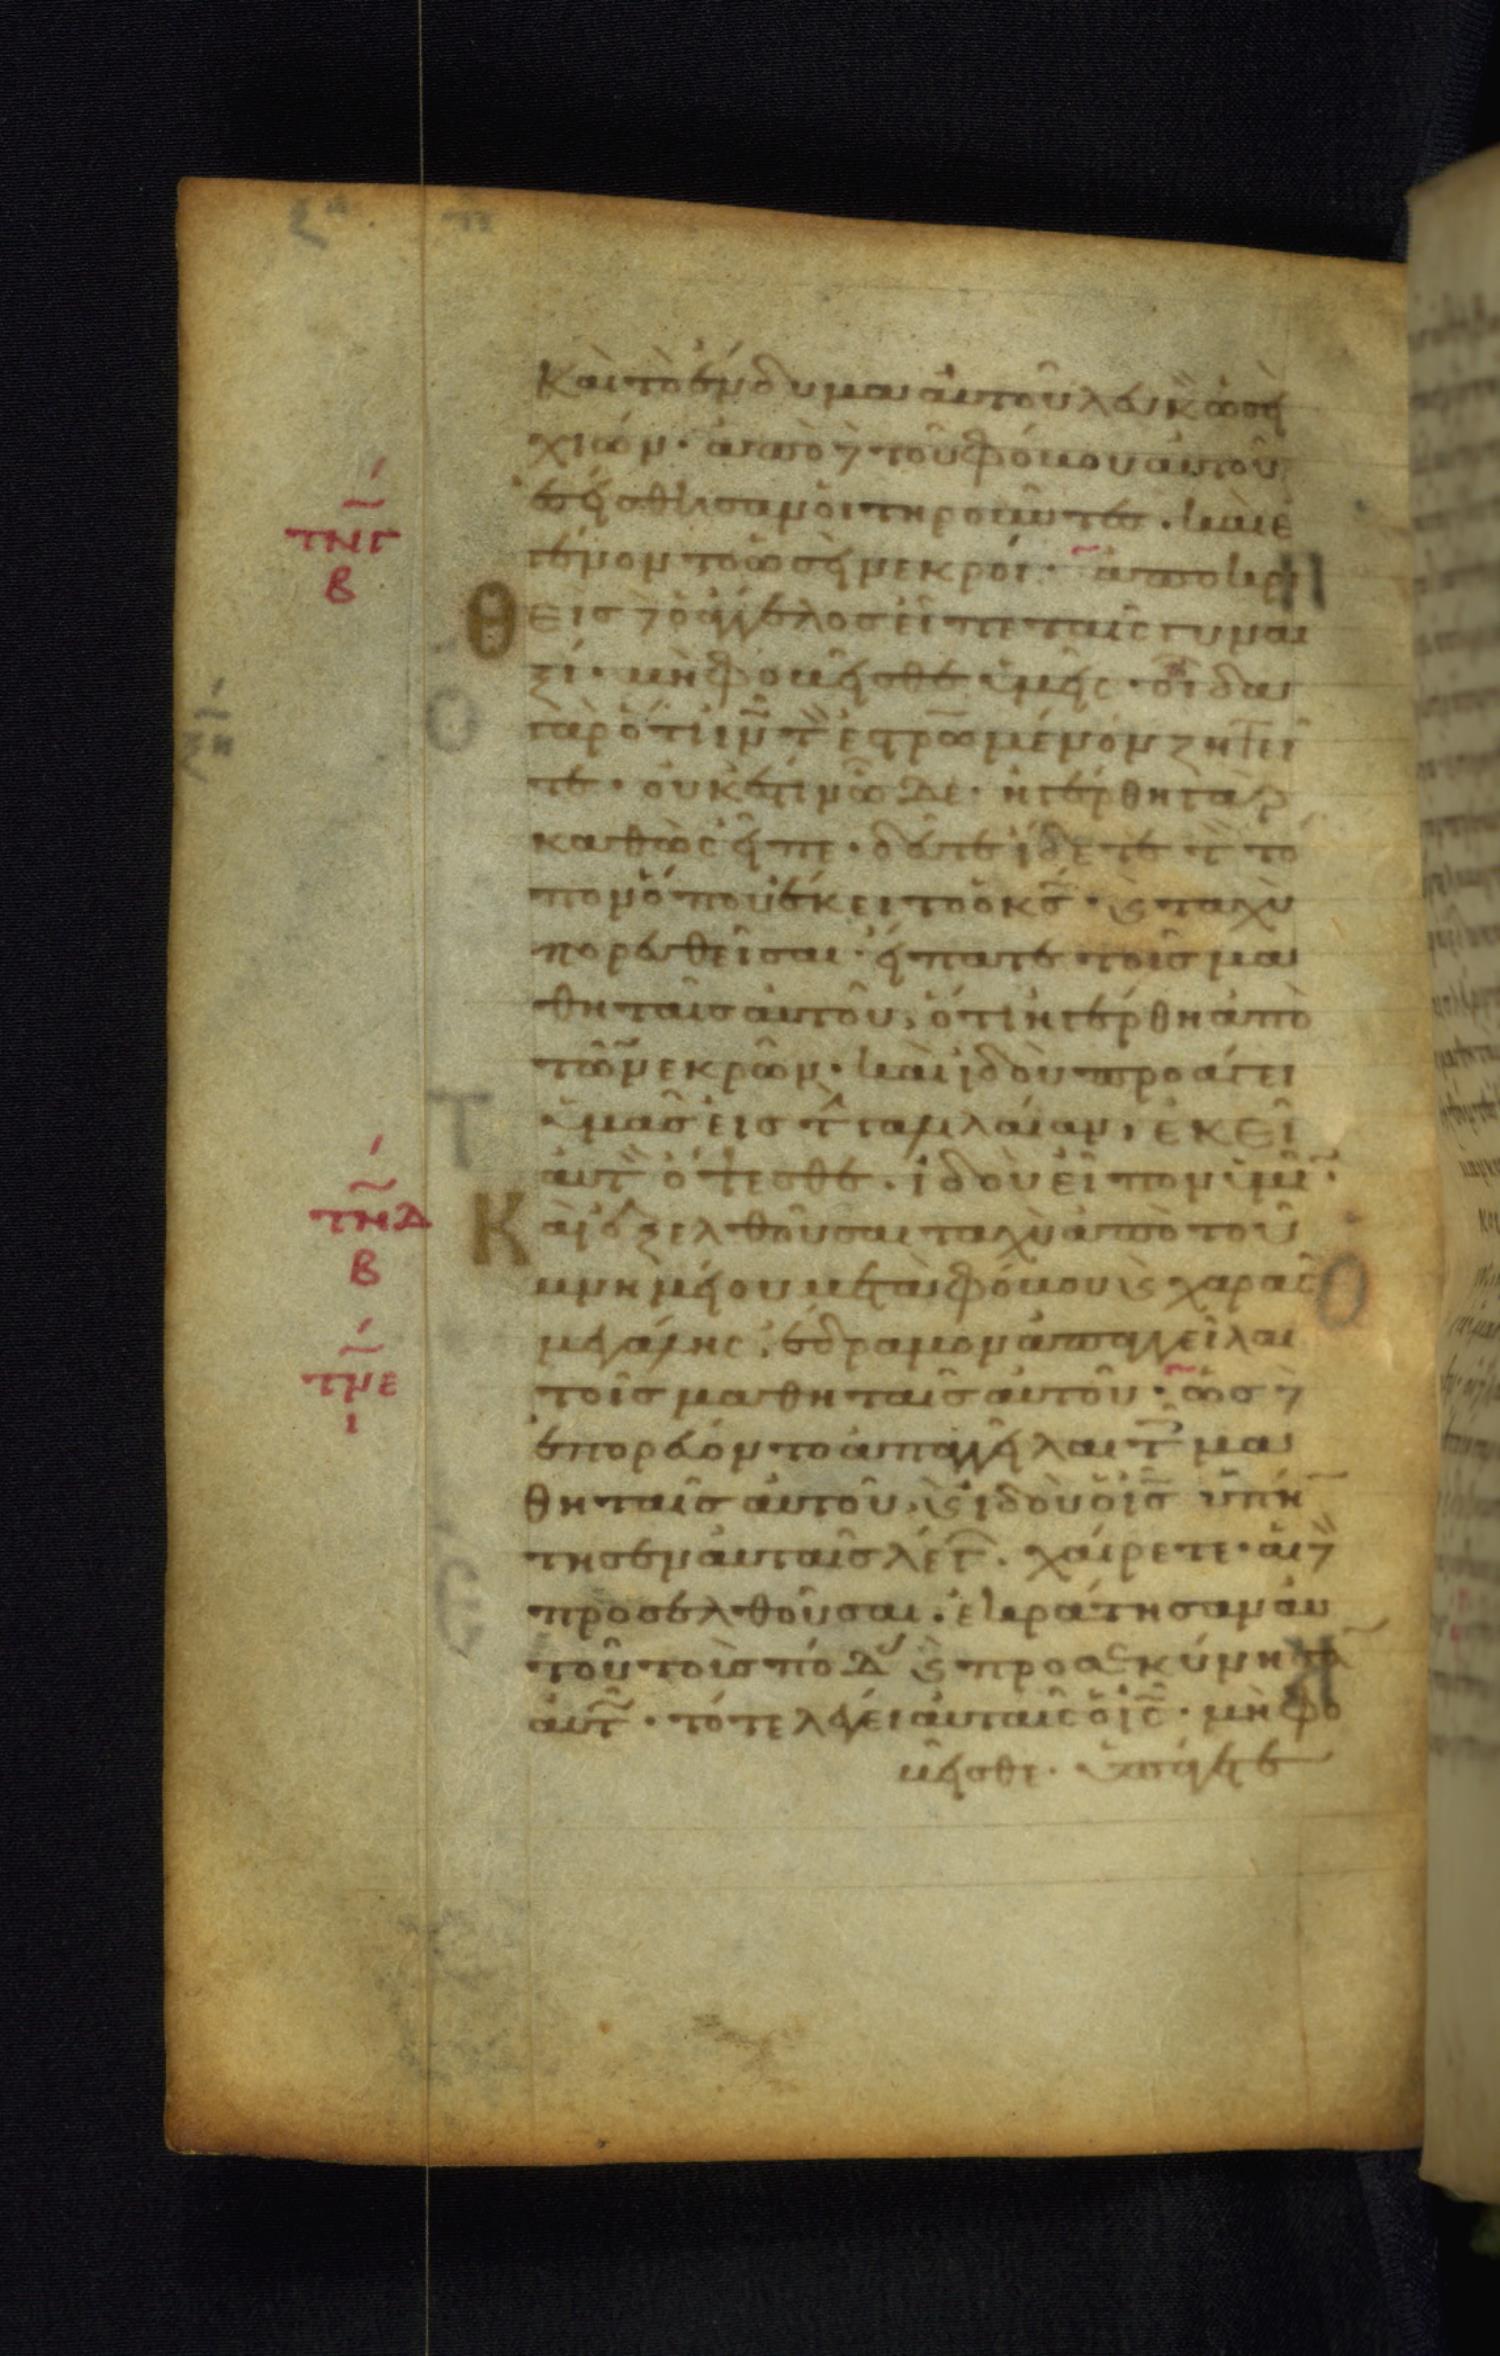 καὶ τὸ ἔνδυμα αὐτοῦ λευκ ὡσὴ
χιών· ἀπὸ δὲ τοῦ φόβου αὐτοῦ
ἐσείσθησαν οἱ τηροῦντες· καὶ ἐ
γένοντο ὡσεὶ νεκροί· ἀποκρι
Θεὶς δὲ ὁ ἄγγελος εἶπε ταῖς γυναι
ξί· μὴ φοβεῖσθε ὑμεῖς· οἶδα
γὰρ ὅτι ιν τ ἐστρωμένον ζητεῖ
τε· οὐκ ἔστιν ὧδε· ἠγέρθη γὰρ
καθὼς εἶπε· δεῦτε ἴδετε τ τό
πον ὅπου ἔκειτο ὁ κς· κ ταχὺ
πορευθεῖσαι· εἴπατε τοῖς μα
θηταῖς αὐτοῦ, ὅτι ἠγέρθη ἀπὸ
τῶν νεκρῶν· καὶ ἰδοὺ προάγει
ὑμᾶς εἰς τ γαλιλαίαν, ἐκεῖ
αὐτ ὄψεσθε· ἰδοὺ εἶπον ὑμν·
Καὶ ἐξελθοῦσαι ταχὺ ἀπὸ τοῦ
μνημείου μετὰ φόβου κ χαρᾶς
μεγάλης, ἔδραμον ἀπαγγεῖλαι
τοῖς μαθηταῖς αὐτοῦ· ὡς δὲ
ἐπορεύοντο ἀπαγγεῖλαι τ μα
θηταῖς αὐτοῦ, κ ἰδοὺ ὁ ις ὑπήν
τησεν αὐταῖς λέγ· χαίρετε· αἱ δὲ
προσελθοῦσαι· ἐκράτησαν αὐ
τοῦ τοὺς πόδ κ προσεκύνησα
αὐτ· τότε λέγει αὐταῖς ὁ ις· μὴ φο
βεῖσθε· ὑπάγετε
τνγ
β
τνδ
β
τνε
ι